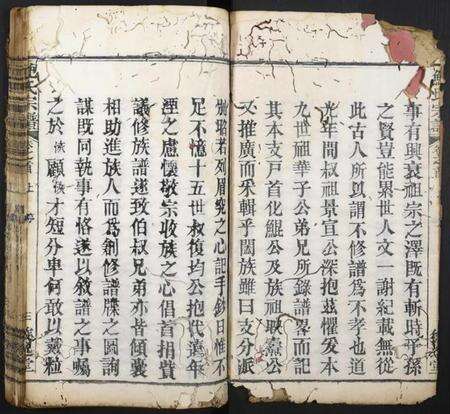 事有興衰祖宗之澤既有斬時乎孫
之賢豈能累世人文一謝紀載無從
此古人所以謂不修譜爲不孝也道
光年間叔祖景宣公深抱兹懼爰本
九世叔祖華子公弟兄所錄譜畧而記
其本支戸首化鯤公及族祖公
又推廣而采輯乎闔族雖曰支分派
若列眉究之心記手鈔日惟不
足不憶十五世叔復均公抱代遠年
湮之慮懷敬宗收族之心倡首捐貲
議修族譜遂致伯叔兄弟亦皆傾囊
相助進族人而爲創修譜牒之圖詢
謀既同執事有恪遂以敘譜之事囑
之於顧才短分卑何敢以戴粒
氏宗譜 卷之首 上
三 堂